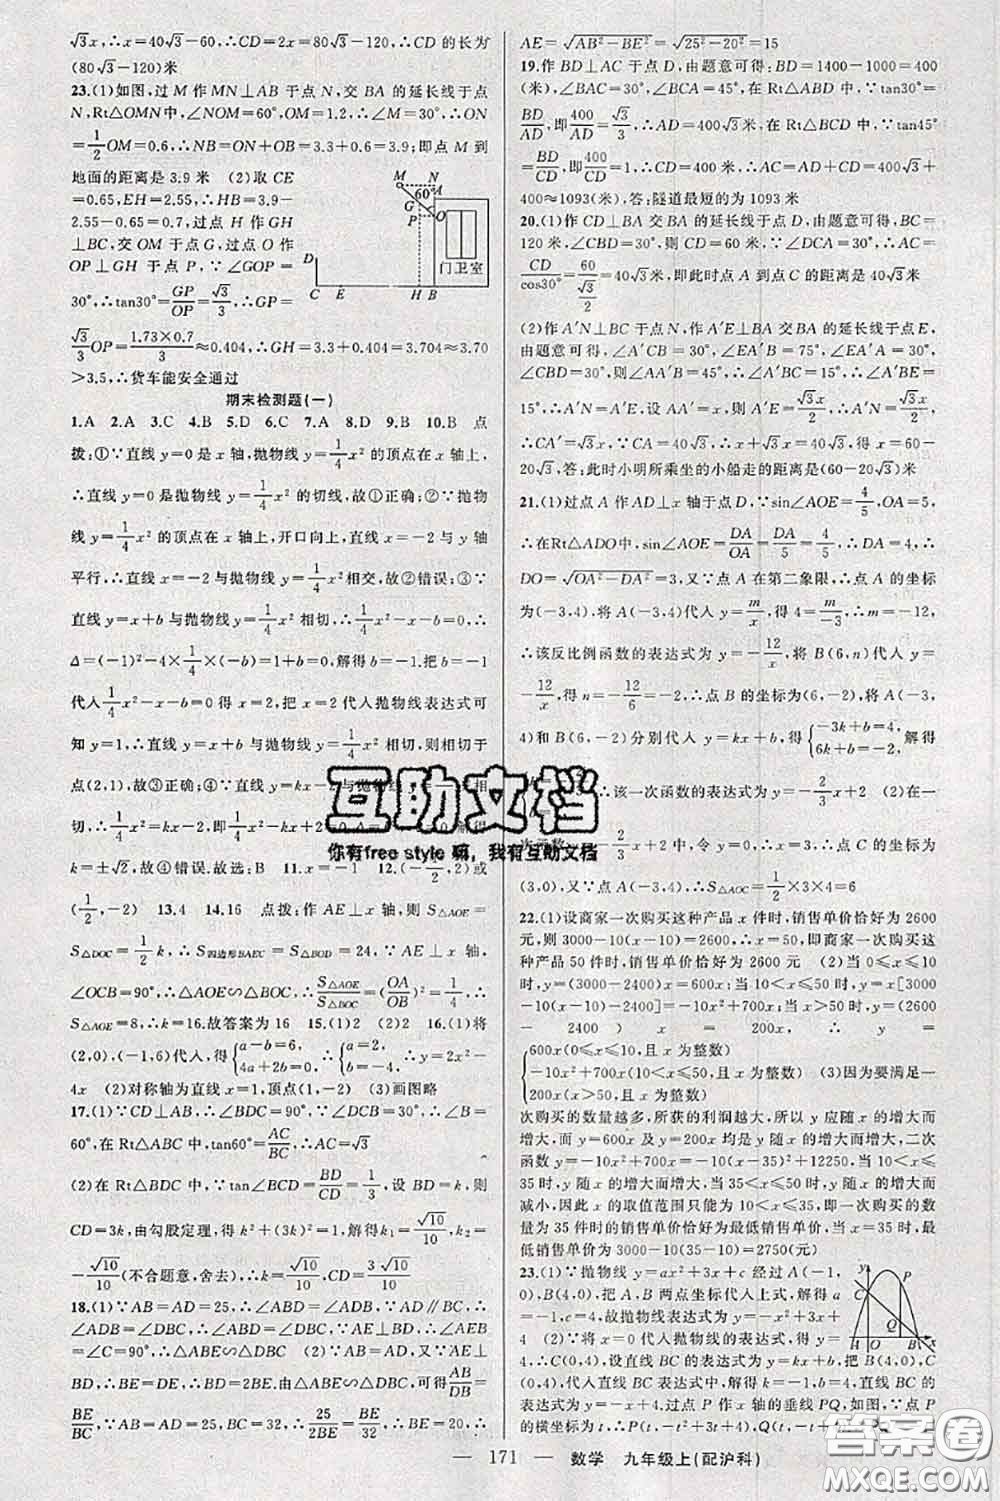 √3x,∴x=40√3-60,∴CD=2x=80√3-120,∴CD的长为
(80√3-120)米
23.(1)如图,过M作MN⊥AB于点N,交BA的延长线于点
N,Rt△OMN中,∠NOM=60°,OM=1.2,∴∠M=30°,∴ON
=1/2OM=0.6,∴NB=ON+OB=3.3+0.6=3.9;即点M到
地面的距离是3.9米 (2)取CE
=0.65,EH=2.55,∴HB=3.9-
2.55-0.65=0.7,过点H作GH
⊥BC,交OM于点G,过点O作
OP⊥GH于点P,∵∠GOP=
30°,∴tan30°=GP/OP=√3/3,∴GP=
√3/3OP=1.73×0.7/3≈0.404,∴GH=3.3+0.404=3.704≈3.70
>3.5,∴货车能安全通过
M N 60° G P O A 门卫室 D C E H B
期末检测题(一)
1.A 2.A 3.C 4.B 5.D 6.C 7.A 8.D 9.B 10.B 点
拨:①∵直线y=0是x轴,抛物线y=1/4x²的顶点在x轴上,
∴直线y=0是抛物线y=1/4x²的切线,故①正确;②∵抛物
线y=1/4x²的顶点在x轴上,开口向上,直线x=-2与y轴
平行,∴直线x=-2与抛物线y=1/4x²相交,故②错误;③∵
直线y=x+b与抛物线y=1/4x²相切,∴1/4x²-x-b=0,∴
Δ=(-1)²-4×1/4×(-b)=1+b=0,解得b=-1,把b=-1
代入1/4x²-x-b=0得x=2,把x=2代入抛物线表达式可
知y=1,∴直线y=x+b与抛物线y=1/4x²相切,则相切于
点(2,1),故③正确;④∵直线y=kx-2与抛物线y=1/4x²相
切,∴1/4x²=kx-2,即1/4x²-kx+2=0,Δ=k²-2=0,解得
k=±√2,故④错误.故选:B 11.x=-1 12.(-1/2,2)或
(1/2,-2) 13.4 14.16 点拨:作AE⊥x轴,则S△AOE=
S△DOC=1/2k,∴S四边形BAEC=S△BOD=24,∵AE⊥x轴,
∠OCB=90°,∴△AOE∽△BOC,∴S△AOE/S△BOC=(OA/OB)²=1/4,∴
S△AOE=8,∴k=16.故答案为16 15.(1)2 (2)2 16.(1)将
(2,0),(-1,6)代入,得{a-b=6,4a+2b=0}∴{a=2,b=-4,∴y=2x²-
4x (2)对称轴为直线x=1,顶点(1,-2) (3)画图略
17.(1)∵CD⊥AB,∴∠BDC=90°,∵∠DCB=30°,∴∠B=
60°,在Rt△ABC中,tan60°=AC/BC,∴AC=√3
(2)在Rt△BDC中,∵tan∠BCD=BD/CD=1/3,设BD=k,则
CD=3k,由勾股定理,得k²+(3k)²=1,解得k₁=√10/10,k₂=
-√10/10(不合题意,舍去),∴k=√10/10,CD=3√10/10
18.(1)∵AB=AD=25,∴∠ABD=∠ADB,∵AD∥BC,∴
∠ADB=∠DBC,∴∠ABD=∠DBC,∵AE⊥BD,∴∠AEB
=∠C=90°,∴△ABE∽△DBC (2)∵AB=AD,又∵AE⊥
BD,∴BE=DE,∴BD=2BE.由△ABE∽△DBC,可得AB/DB=
BE/BC,∵AB=AD=25,BC=32,∴25/2BE=BE/32,∴BE=20,∴
AE=√AB²-BE²=√25²-20²=15
19.作BD⊥AC于点D,由题意可得:BD=1400-1000=400
(米),∠BAC=30°,∠BCA=45°,在Rt△ABD中,∵tan30°=
BD/AD,即400/AD=√3/3,∴AD=400√3米,在Rt△BCD中,∵tan45°=
BD/CD,即400/CD=1,∴CD=400米,∴AC=AD+CD=400√3+
400≈1093(米),答:隧道最短的为1093米
20.(1)作CD⊥BA交BA的延长线于点D,由题意可得,BC=
120米,∠CBD=30°,则CD=60米,∵∠DCA=30°,∴AC=
CD/cos30°=60/(√3/2)=40√3米,即此时点A到点C的距离是40√3米
(2)作A′N⊥BC于点N,作A′E⊥BA交BA的延长线于点E,
由题意可得,∠A′CB=30°,∠EA′B=75°,∠EA′A=30°,
∠CBD=30°,则∠AA′C=45°,∴∠A′BN=15°,∠A′BE=
15°,∴A′N=A′E,设AA′=x,则A′E=√3x/2,∴A′N=√3x/2,
∴CA′=√3x,∵CA=40√3,∴x+√3x=40√3,解得,x=60-
20√3,答:此时小明所乘坐的小船走的距离是(60-20√3)米
21.(1)过点A作AD⊥x轴于点D,∵sin∠AOE=4/5,OA=5,
∴在Rt△ADO中,sin∠AOE=DA/OA=DA/5=4/5,∴DA=4,∴
DO=√OA²-DA²=3,又∵点A在第二象限,∴点A的坐标
为(-3,4),将A(-3,4)代入y=m/x,得4=m/-3,∴m=-12,
∴该反比例函数的表达式为y=-12/x,将B(6,n)代入y=
-12/x,得n=-12/6=-2,∴点B的坐标为(6,-2),将A(-3,
4)和B(6,-2)分别代入y=kx+b,得{-3k+b=4,6k+b=-2,解得
∴该一次函数的表达式为y=-2/3x+2 (2)在一
次函数y=-2/3x+2中,令y=0,则x=3,∴点C的坐标为
(3,0),又∵点A(-3,4),∴S△AOC=1/2×3×4=6
22.(1)设商家一次购买这种产品x件时,销售单价恰好为2600
元,则3000-10(x-10)=2600,∴x=50,即商家一次购买这
种产品50件时,销售单价恰好为2600元 (2)当0≤x≤10
时,y=(3000-2400)x=600x;当10<x≤50时,y=x[3000
-10(x-10)-2400]=-10x²+700x;当x>50时,y=(2600
-2400)x=200x,∴y=
{600x(0≤x≤10,且x为整数)
-10x²+700x(10<x≤50,且x为整数) (3)因为要满足一
200x(x>50,且x为整数)
次购买的数量越多,所获的利润越大,所以y应随x的增大而
增大,而y=600x及y=200x均是y随x的增大而增大,二次
函数y=-10x²+700x=-10(x-35)²+12250,当10<x≤
35时,y随x的增大而增大,当35<x≤50时,y随x的增大而
减小,因此x的取值范围只能为10<x≤35,即一次购买的数
量为35件时的销售单价恰好为最低销售单价,当x=35时,最
低销售单价为3000-10(35-10)=2750(元)
23.(1)∵抛物线y=ax²+3x+c经过A(-1,
0),B(4,0),把A,B两点坐标代入上式,解得a
=-1,c=4,故抛物线表达式为y=-x²+3x+
4 (2)∵将x=0代入抛物线的表达式,得y=
4,∴C(0,4),设直线BC的表达式为y=kx+b,把B(4,0),C
(0,4),代入直线BC表达式中,解得k=-1,b=4,∴直线BC
的表达式为y=-x+4,过点P作x轴的垂线PQ,如图,∵点P
的横坐标为t,∴P(t,-t²+3t+4),Q(t,-t+4),∴PQ=
y P C Q H O B x
互助文档
你有free style嘛,我有互助文档
— 171 — 数学 九年级上(配沪科)
答案圈
MXQE.COM